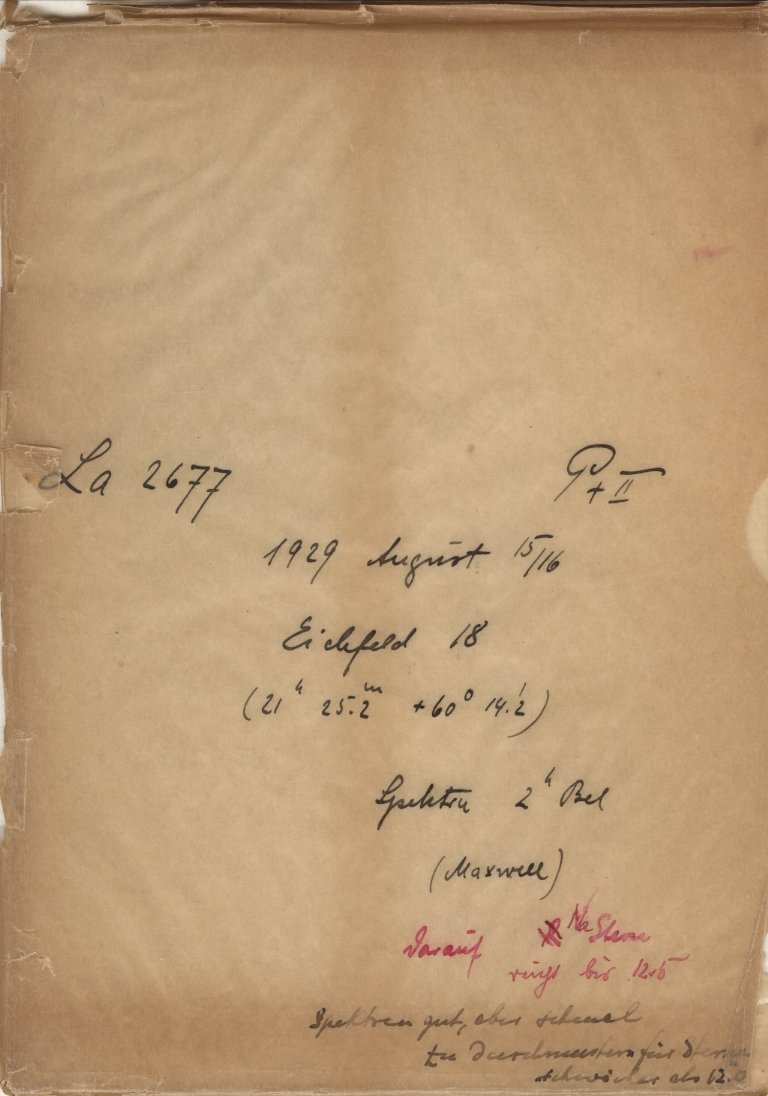 La 2677 P + II
1929 August 15/16
Eichfeld 18
(21h 25.2m +60° 14.'2)
Spektren 2h Bel
(Maxwell)
Darauf Na Sterne
bis 12.5
Spektren gut, aber schmal
zu Durchmustern für Sterne
schwächer als 12.0